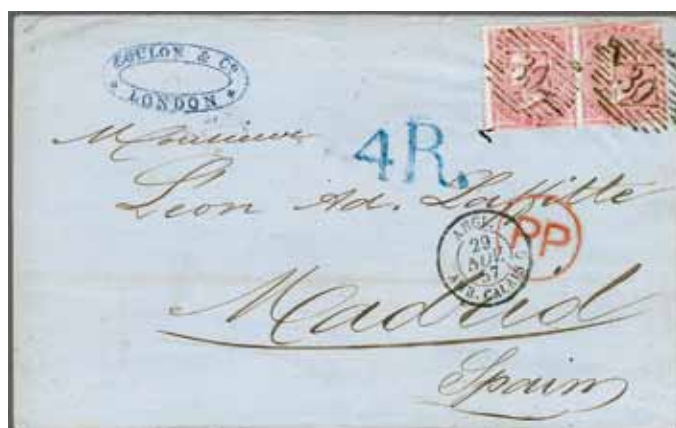 COULON & Co
LONDON
30
30
Monsieur
4R.
Leon Ad. Laffitte
ANGL.
29
57
AMB. CALAIS
PP
Madrid
Spain